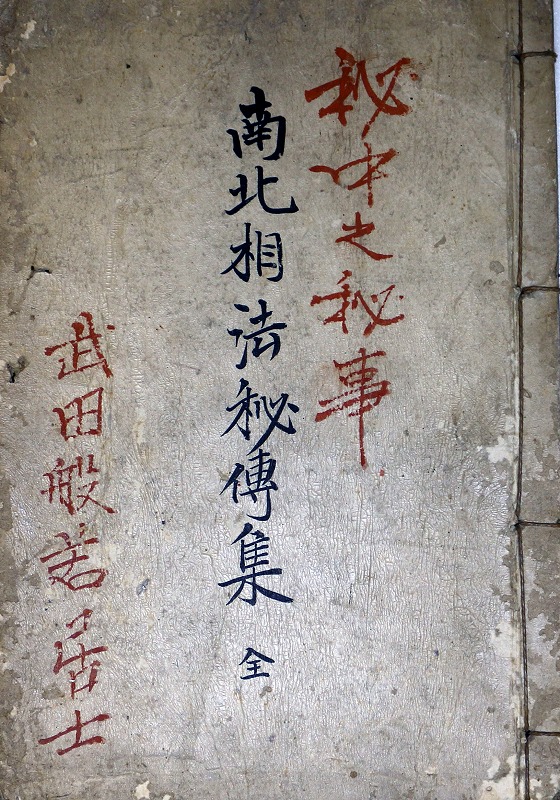 秘中之秘事
南北相法秘傳集 全
武田般若居士